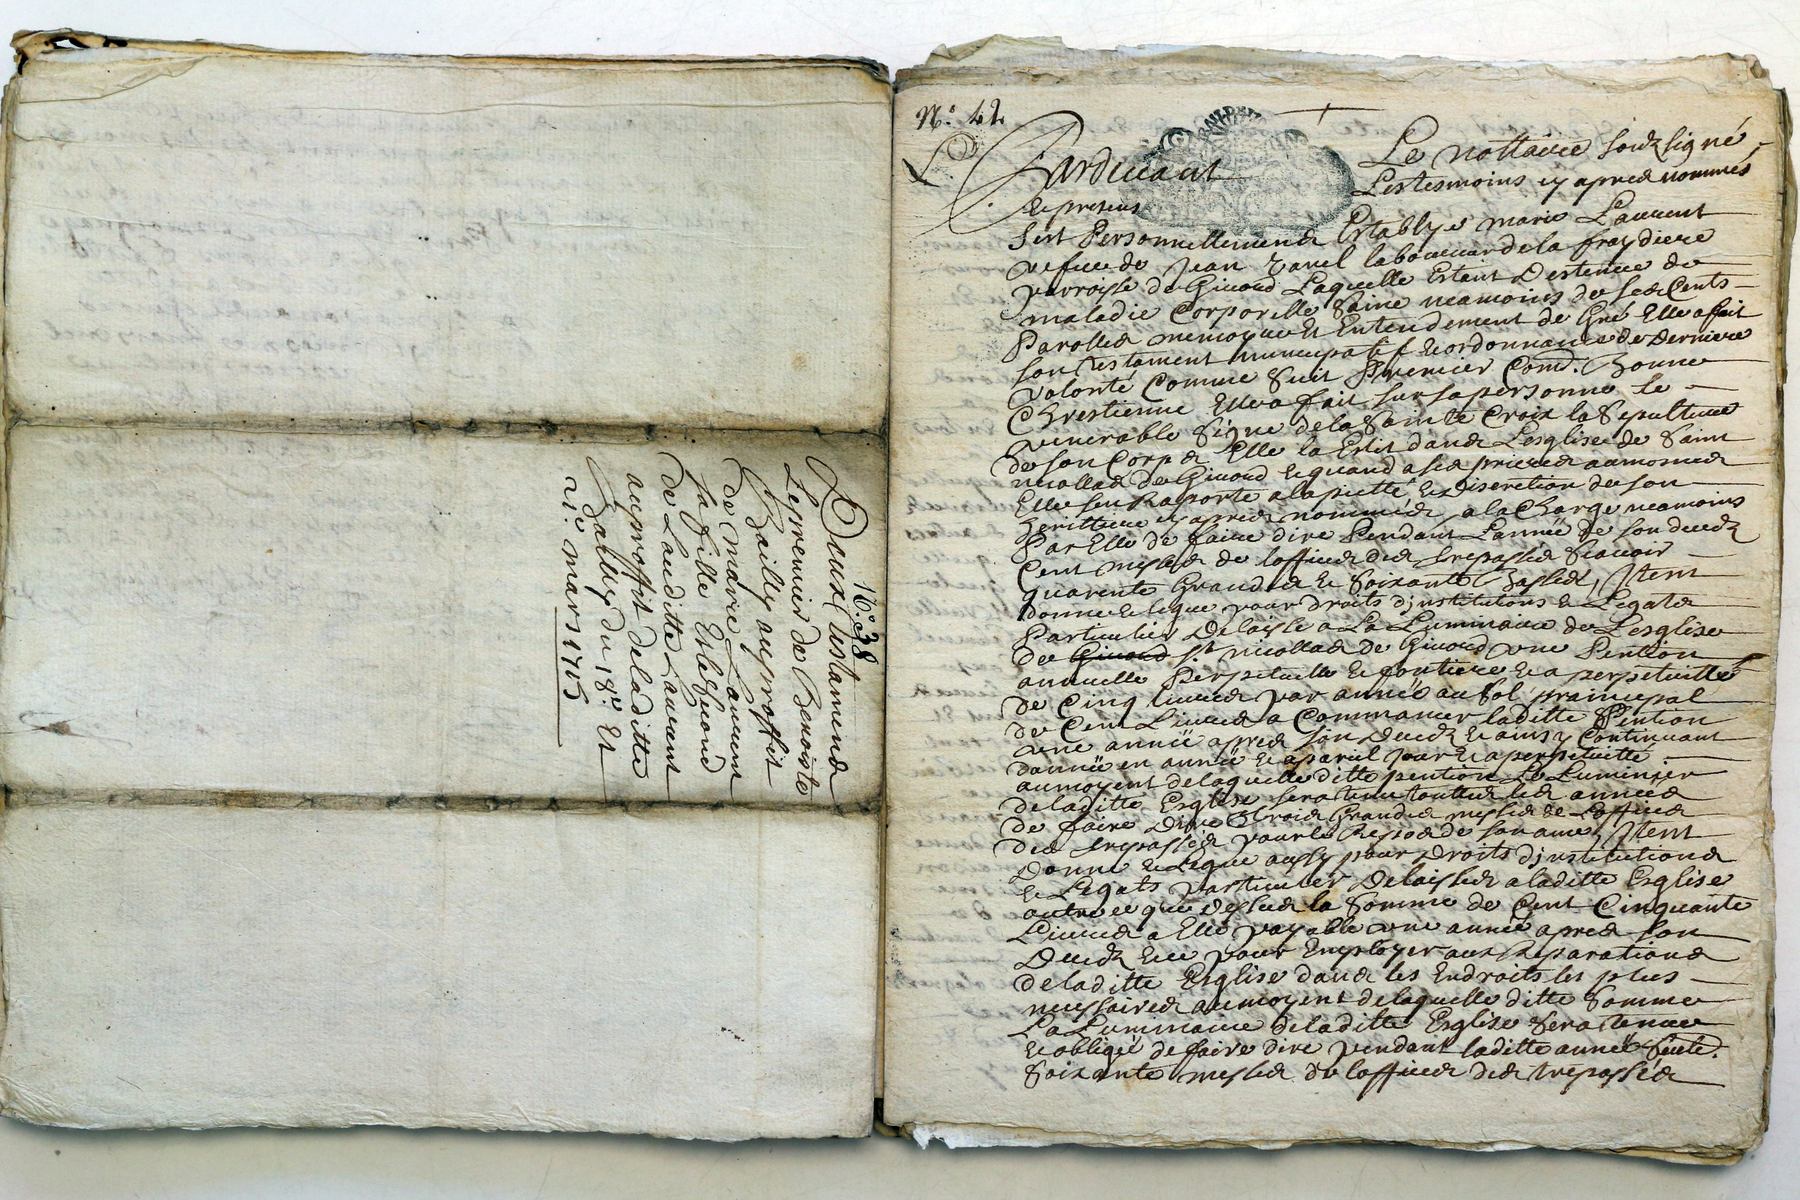 N° 38
Deux testamends
Le premier de Benoiste
Bailly au proffit
de marie Laurent
sa fille Et le second
de Laditte Laurent
au proffit de laditte
Bailly du 18e. Et
21e. mars 1715
N° 42
Pardevant Le nottaire soubsigné
Les tesmoins cy apres nommés
Et presens
fut Personnellement Establye marie Laurent
vefue de Jean laboureur de la fraydiere
parroisse de Giuord Laquelle Estant Destenue de
maladie Corporelle saine neamoins de ses Cents
Parolles memoyre Et Entendement de Gre Elle a fait
son testament nuncupatif Et ordonnance de derniere
volonté Comme suit Premier Comd. Bonne
Chrestienne Elle a fait sur sa personne le
venerable signe de la sainte Croix la sepulture
de son Corps Elle la Eslit dans L'esglise de saint
nicollas de Giuord Et quand a ses prieres aumosnes
Elle sen Raporte a la piette Et discretion de son
heritiere cy apres nommée, a la Charge neamoins
Par Elle de faire dire Pendant L'année de son deces
Cent messes de loffice des trepassés scauoir
quarente Grandes Et soixante Basses, Item
donne Et legue pour droits d'institutons Et Legats
Particulier Delaisse a La Luminaire de L'esglise
de Giuord st nicollas de Giuord une Pention
annuelle Perpetuelle Et fontiere Et a perpetuitté
de Cinq liures par année au sol principal
de Cent Liures a Commancer laditte Pention
une année apres son deces Et ainsy Continuant
d'année en année Et a pareil jour Et a perpetuitté
aumoyent de laquelle ditte pention Le Luminier
de laditte Esglise sera tenu touttes les années
de faire Dire trois Grandes messes de Loffice
des trepassés pour le Repos de son ame, Item
donne Et Legue aussy pour droits d'institutions
Et Legats particulier Delaisses a laditte Esglise
outre ce que dessus la somme de Cent Cinquante
Liures a Elle payable une année apres son
deces Et ce pour Employer aux Reparations
de laditte Esglise dans les Endroits les plus
necessaires aumoyent de laquelle ditte somme
La Luminaire de laditte Esglise sera tenue
Et obligé de faire dire pendant laditte année seule.
soixante messes de loffice des trepassés